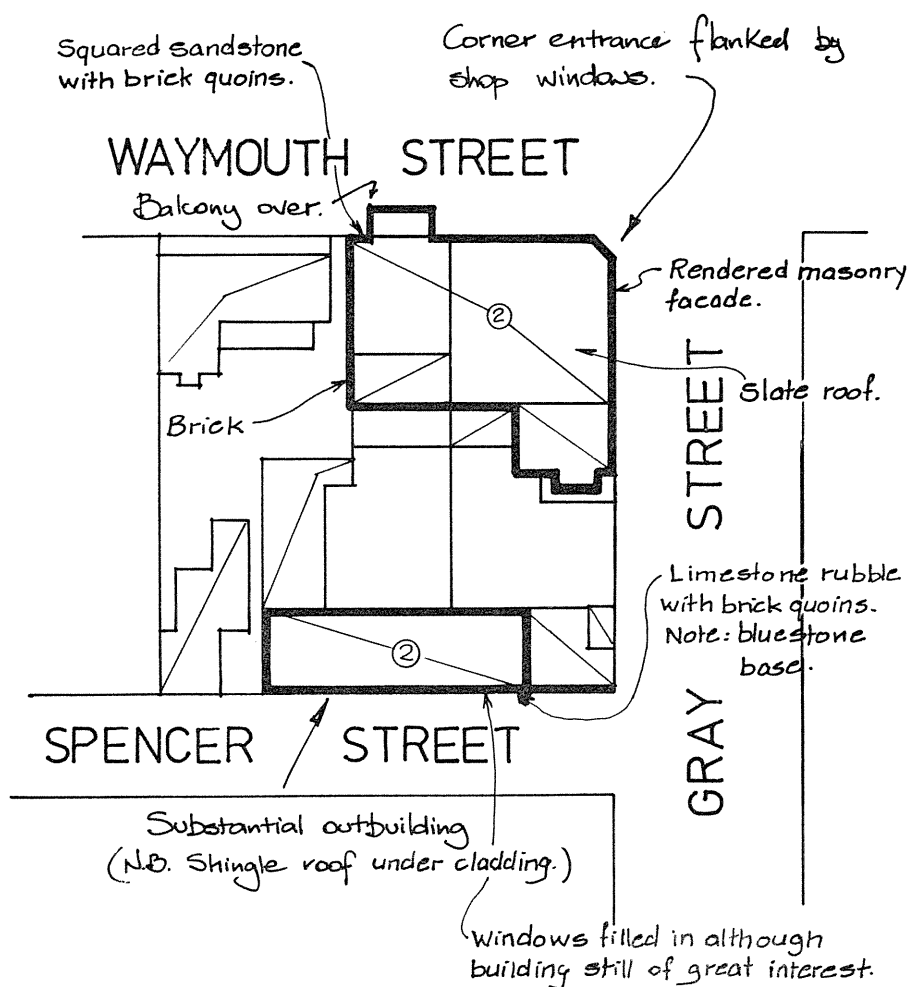 Squared sandstone
with brick quoins.
Corner entrance flanked by
shop windows.
WAYMOUTH STREET
Balcony over.
Rendered masonry
facade.
②
Slate roof.
Brick
GRAY STREET
Limestone rubble
with brick quoins.
Note: bluestone
base.
②
SPENCER STREET
Substantial outbuilding
(N.B. Shingle roof under cladding.)
Windows filled in although
building still of great interest.